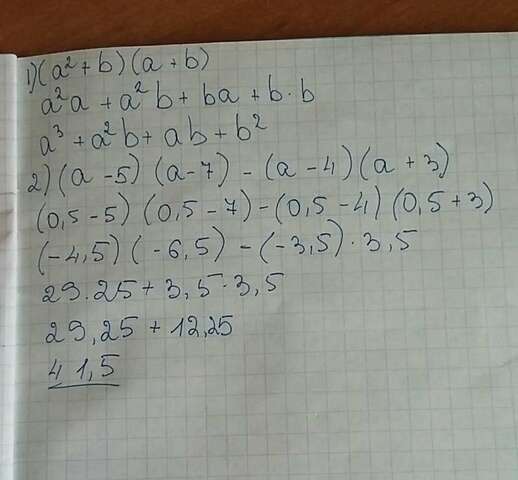 1) (a² + b) (a + b)
a²a + a²b + ba + b · b
a³ + a²b + ab + b²
2) (a - 5) (a - 7) - (a - 4) (a + 3)
(0,5 - 5) (0,5 - 7) - (0,5 - 4) (0,5 + 3)
(-4,5) (-6,5) - (-3,5) · 3,5
29.25 + 3,5 · 3,5
29,25 + 12,25
41,5